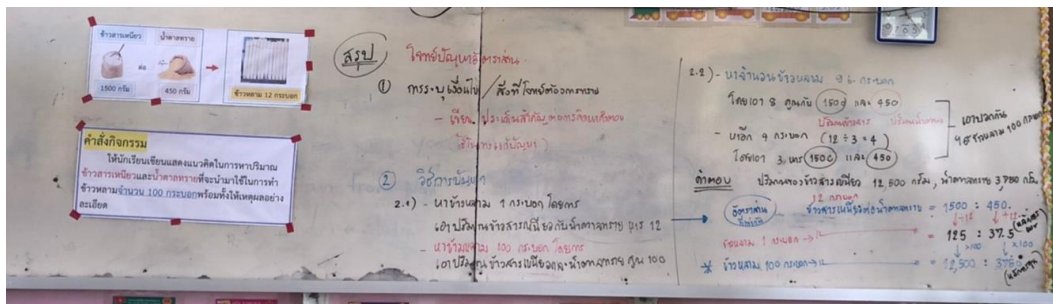 ข้าวสารเหนียว
น้ำตาลทราย
ต่อ
1500 กรัม
450 กรัม
ข้าวหลาม 12 กระบอก
คำสั่งกิจกรรม
ให้นักเรียนเขียนแสดงแนวคิดในการหาปริมาณ
ข้าวสารเหนียวและน้ำตาลทรายที่จะนำมาใช้ในการทำ
ข้าวหลามจำนวน 100 กระบอกพร้อมทั้งให้เหตุผลอย่าง
ละเอียด
สรุป
โจทย์ปัญหาอัตราส่วน
① การระบุเงื่อนไข / สิ่งที่โจทย์ต้องการทราบ
② วิธีการ
2.1) - หาข้าวหลาม 1 กระบอก โดยการ
เอาปริมาณข้าวสารเหนียวกับน้ำตาลทราย หาร 12
- หาข้าวหลาม 100 กระบอก โดยการ
เอาปริมาณข้าวสารเหนียวและน้ำตาลทราย คูณ 100
2.2) - หาจำนวนข้าวหลาม 96 กระบอก
โดยเอา 8 คูณกับ 1500 และ 450
- หาอีก 4 กระบอก (12 ÷ 3 = 4)
โดยเอา 3 หาร 1500 และ 450
เอามาบวกกัน
ข้าวหลาม 100 กระบอก
คำตอบ ปริมาณของข้าวสารเหนียว 12,500 กรัม, น้ำตาลทราย 3,750 กรัม
12 กระบอก
อัตราส่วน ข้าวสารเหนียวต่อน้ำตาลทราย = 1500 : 450
÷12 ÷12
ข้าวหลาม 1 กระบอก = 125 : 37.5
×100 ×100
* ข้าวหลาม 100 กระบอก = 12,500 : 3750